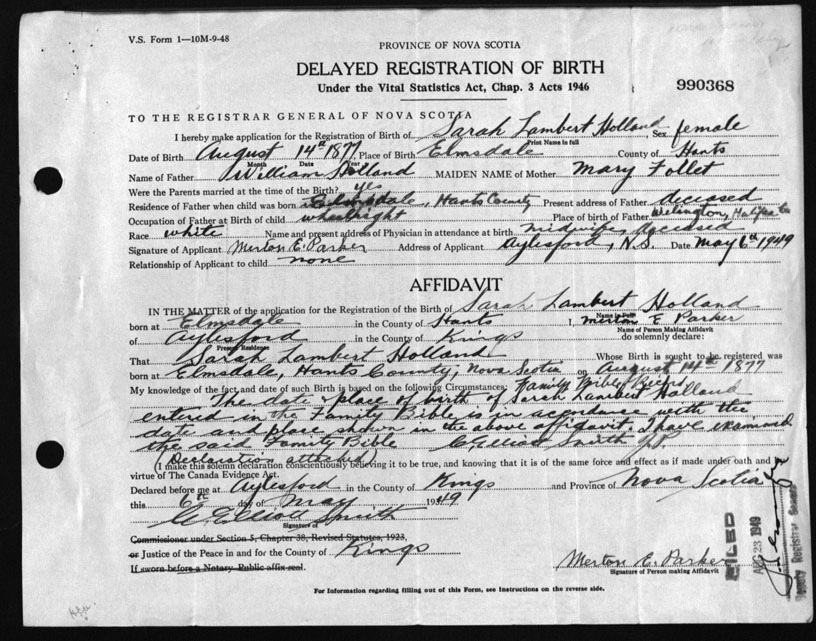 V.S. Form 1—10M-9-48
PROVINCE OF NOVA SCOTIA
DELAYED REGISTRATION OF BIRTH
Under the Vital Statistics Act, Chap. 3 Acts 1946
990368
TO THE REGISTRAR GENERAL OF NOVA SCOTIA
I hereby make application for the Registration of Birth of Sarah Lambert Holland, Sex female
Print Name in full
Date of Birth August 14th 1877, Place of Birth Elmsdale County of Hants
Month Date Year
Name of Father William Holland MAIDEN NAME of Mother Mary Follet
Were the Parents married at the time of the Birth? yes
Residence of Father when child was born Elmsdale, Hants County Present address of Father deceased
Occupation of Father at Birth of child wheelright Place of birth of Father Wellington, Halifax Co
Race white Name and present address of Physician in attendance at birth midwife, deceased
Signature of Applicant Merton E. Parker Address of Applicant Aylesford, N.S. Date May 6th 1949
Relationship of Applicant to child none
AFFIDAVIT
IN THE MATTER of the application for the Registration of the Birth of Sarah Lambert Holland
Name in full
born at Elmsdale in the County of Hants I, Merton E Parker
Name of Person Making Affidavit
of Aylesford in the County of Kings do solemnly declare:
Present Residence
That Sarah Lambert Holland Whose Birth is sought to be registered was
born at Elmsdale, Hants County, Nova Scotia on August 14th 1877
My knowledge of the fact and date of such Birth is based on the following Circumstances: Family Bible Record
The date & place of birth of Sarah Lambert Holland
entered in the Family Bible is in acordance with the
date and place shown in the above affidavit. I have examined
the said Family Bible C. Elliott Smith J.P.
(Declaration attached)
(I make this solemn declaration conscientiously believing it to be true, and knowing that it is of the same force and effect as if made under oath and by
virtue of The Canada Evidence Act.
Declared before me at Aylesford in the County of Kings and Province of Nova Scotia
this 6th day of May 1949
C. Elliott Smith
Signature of
Commissioner under Section 5, Chapter 38, Revised Statutes, 1923,
or Justice of the Peace in and for the County of Kings
If sworn before a Notary Public affix seal.
Merton E. Parker
Signature of Person making Affidavit
FILED
AUG 23 1949
Deputy Registrar General
For Information regarding filling out of this Form, see Instructions on the reverse side.